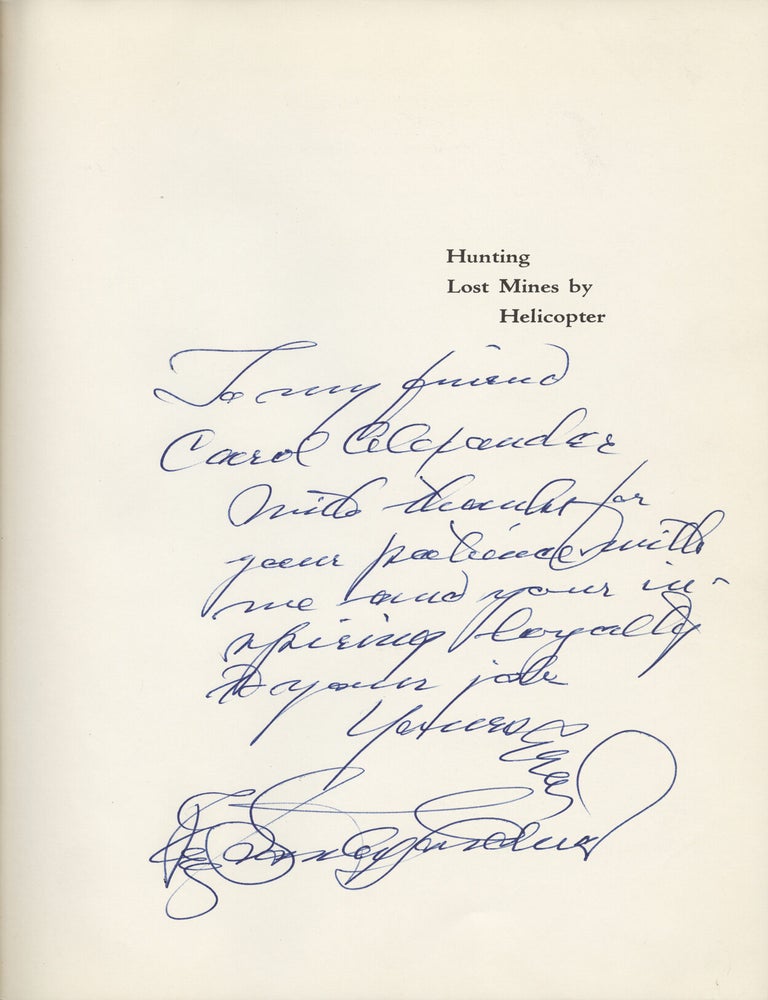 Hunting
Lost Mines by
Helicopter
To my friend
Carol Alexander
With thanks for
your patience with
me and your in-
spiring loyalty
to your job
Yours
Erle Stanley Gardner